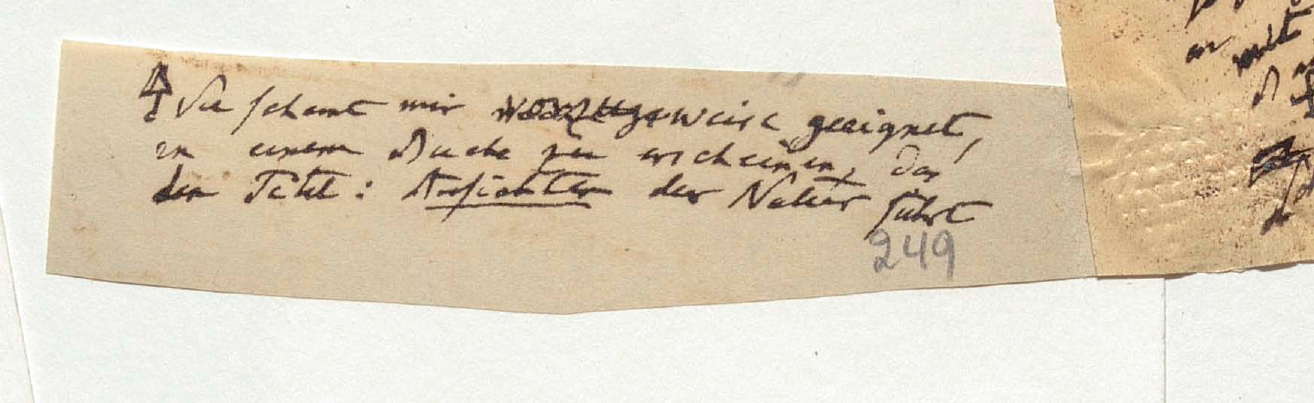 Sie scheint mir vorzugsweise geeignet,
in einem Buche zu erscheinen, das
den Titel: Ansichten der Natur führt
249